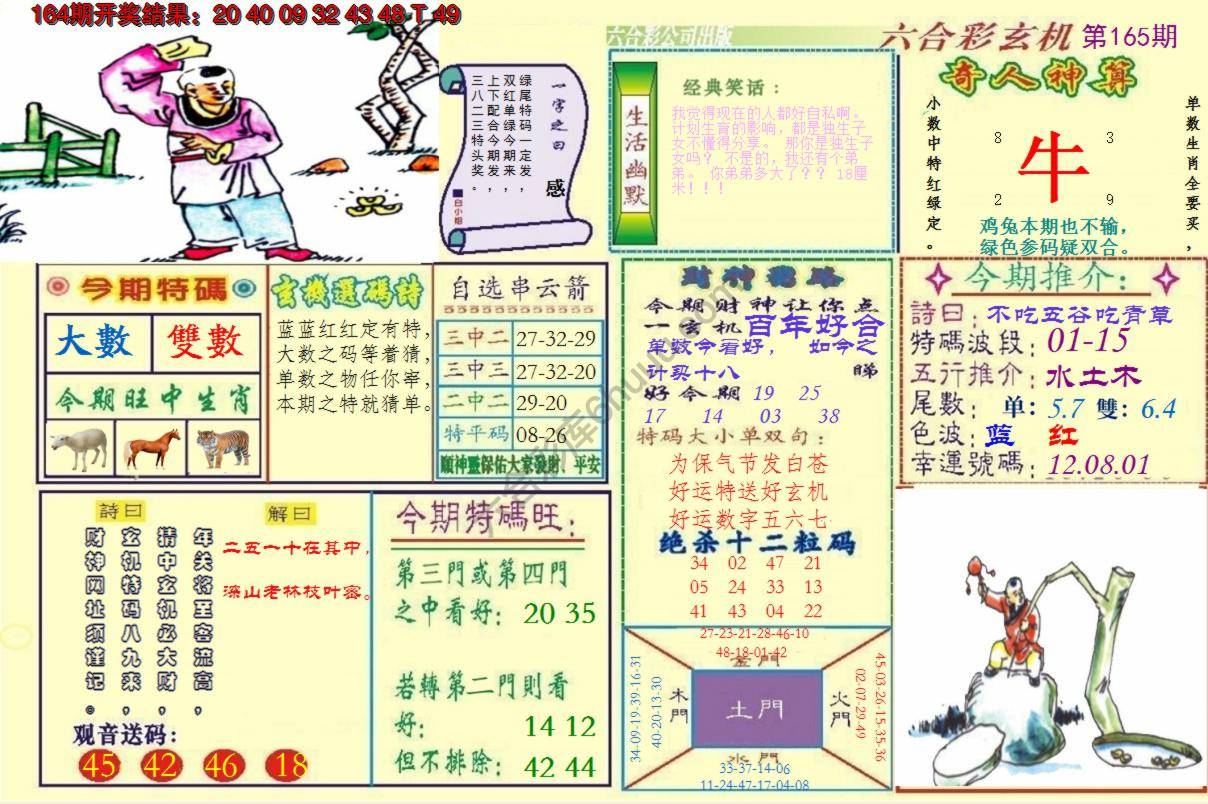 164期开奖结果：20 40 09 32 43 48 T 49
一字之曰
感
绿尾特码一定发，
双红单绿今期来，
上下配合今期发，
三八二三特头奖。
白小姐
六合彩公司出版
生活幽默
经典笑话：
我觉得现在的人都好自私啊。
计划生育的影响，都是独生子
女不懂得分享。 那你是独生子
女吗？ 不是的，我还有个弟
弟。 你弟弟多大了？？ 18厘
米！！！
六合彩玄机 第165期
奇人神算
单数生肖全要买，
小数中特红绿定。
8 3
牛
2 9
鸡兔本期也不输，
绿色参码疑双合。
今期特碼
大數 雙數
今期旺中生肖
玄機選碼詩
蓝蓝红红定有特，
大数之码等着猜，
单数之物任你宰，
本期之特就猜单。
自选串云箭
三中二 27-32-29
三中三 27-32-20
二中二 29-20
特平码 08-26
願神靈保佑大家發財，平安
今期财神让你点
一玄机 百年好合
单数今看好， 如今之
计买十八 睇
好今期 19 25
17 14 03 38
特码大小单双句：
为保气节发白苍
好运特送好玄机
好运数字五六七
绝杀十二粒码
34 02 47 21
05 24 33 13
41 43 04 22
27-23-21-28-46-10
48-18-01-42
金門
34-09-19-39-16-31
40-20-13-30
木門
土門
火門
45-03-26-15-35-36
02-07-29-49
水門
33-37-14-06
11-24-47-17-04-08
今期推介：
詩曰：不吃五谷吃青草
特碼波段：01-15
五行推介：水土木
尾數： 单：5.7 雙：6.4
色波：蓝 红
幸運號碼：12.08.01
詩曰
年关将至客流高，
猜中玄机必大财，
玄机特码八九来，
财神网址须谨记。
解曰
二五一十在其中，
深山老林枝叶密。
观音送码：
45 42 46 18
今期特碼旺：
第三門或第四門
之中看好： 20 35
若轉第二門則看
好： 14 12
但不排除： 42 44